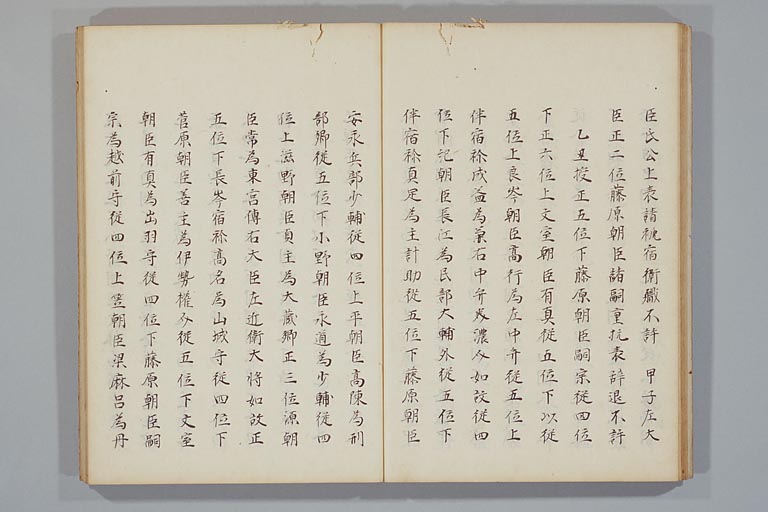 臣氏公上表請褫宿衛職不許　甲子左大
臣正二位藤原朝臣諸嗣重抗表辞退不許
乙丑授正五位下藤原朝臣嗣宗従四位
下正六位上文室朝臣有真従五位下以従
五位上良岑朝臣高行為左中弁従五位上
伴宿祢成益為兼右中弁美濃介如故従四
位下紀朝臣長江為民部大輔外従五位下
伴宿祢真足為主計助従五位下藤原朝臣
安永兵部少輔従四位上平朝臣高陳為刑
部卿従五位下小野朝臣永道為少輔従四
位上滋野朝臣貞主為大蔵卿正三位源朝
臣常為東宮傅右大臣左近衛大将如故正
五位下長岑宿祢高名為山城守従四位下
菅原朝臣善主為伊勢権介従五位下文室
朝臣有真為出羽守従四位下藤原朝臣嗣
宗為越前守従四位上笠朝臣梁麻呂為丹